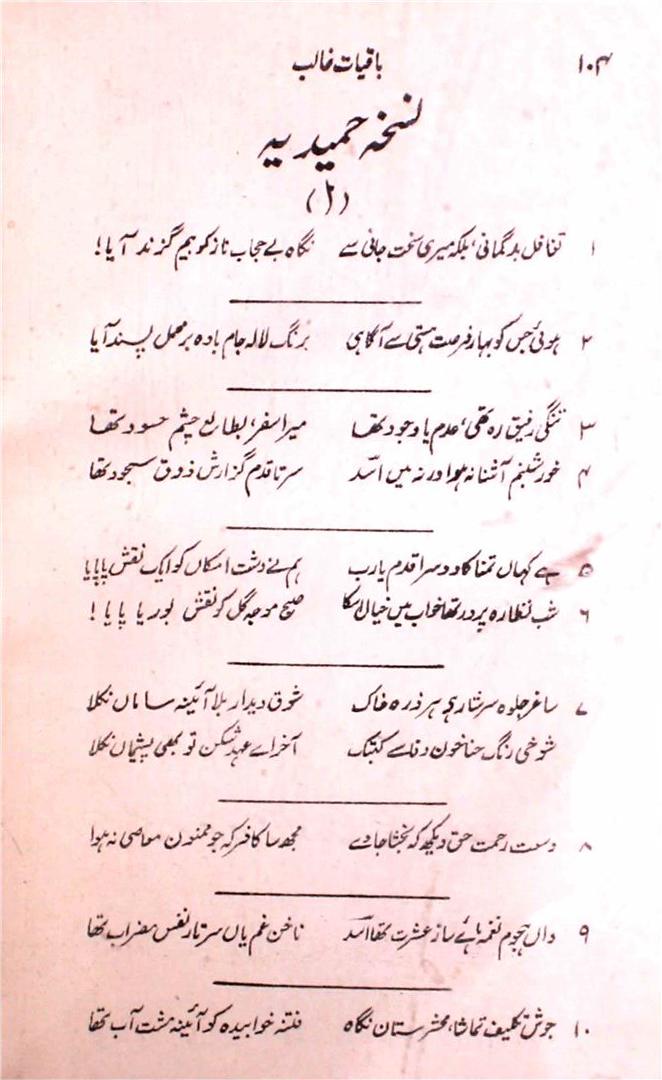 ۱۰۴ باقیات غالب
نسخہ حمیدیہ
(۱)
۱ تغافل بدگمانی، بلکہ میری سخت جانی سے نگاہ بے حجاب ناز کو بیم گزند آیا!
۲ ہوئی جس کو بہار فرصت ہستی سے آگاہی برنگ لالہ جام بادہ بر محمل پسند آیا
۳ تنگی رفیق رہ تھی، عدم یا وجود تھا میرا سفر، بطالع چشم حسود تھا
۴ خور شبنم آشنا نہ ہوا ورنہ میں اسد سر تا قدم گزارش ذوق سجود تھا
۵ ہے کہاں تمنا کا دوسرا قدم یارب ہم نے دشت امکاں کو ایک نقش پا پایا
۶ شب نظارہ پرور تھا خواب میں خیال اسکا صبح موجہ گل کو نقش بوریا پایا!
۷ ساغر جلوہ سرشار ہے ہر ذرہ خاک شوق دیدار بلا آئینہ ساماں نکلا
شوخی رنگ حنا خون وفا سے کبتک آخر اے عہد شکن تو بھی پشیماں نکلا
۸ وسعت رحمت حق دیکھ کہ بخشا جاوے مجھ سا کافر کہ جو ممنون معاصی نہ ہوا
۹ واں ہجوم نغمہ ہائے ساز عشرت تھا اسد ناخن غم یاں سر تار نفس مضراب تھا
۱۰ جوش تکلیف تماشا، محشرستان نگاہ فتنہ خوابیدہ کو آئینہ مشت آب تھا